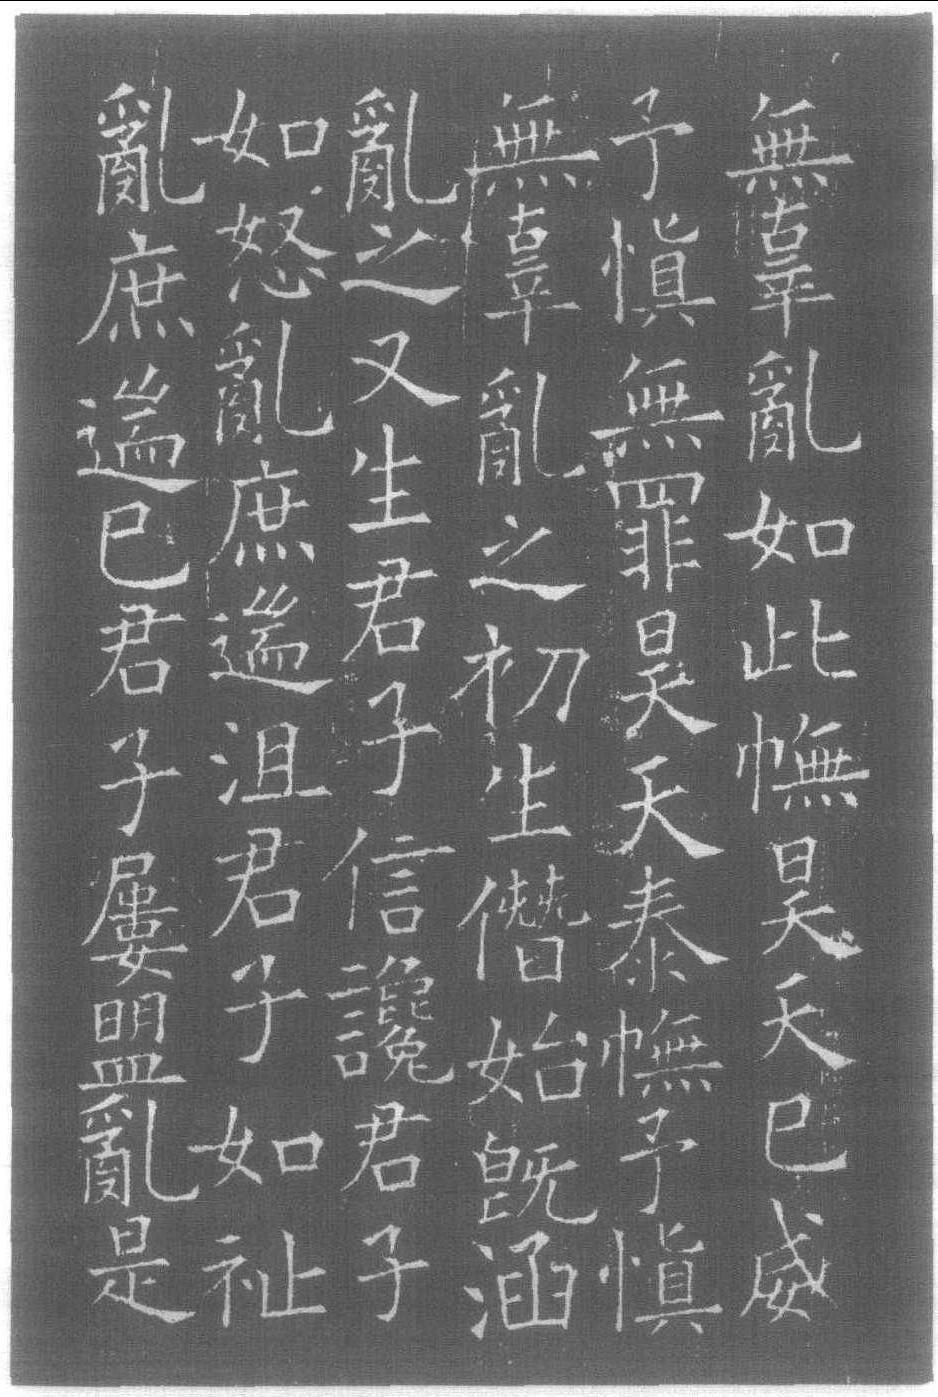 無辜亂如此幠昊天已威
予慎無罪昊天泰幠予慎
無辜亂之初生僭始既涵
亂之又生君子信讒君子
如怒亂庶遄沮君子如祉
亂庶遄已君子屢盟亂是